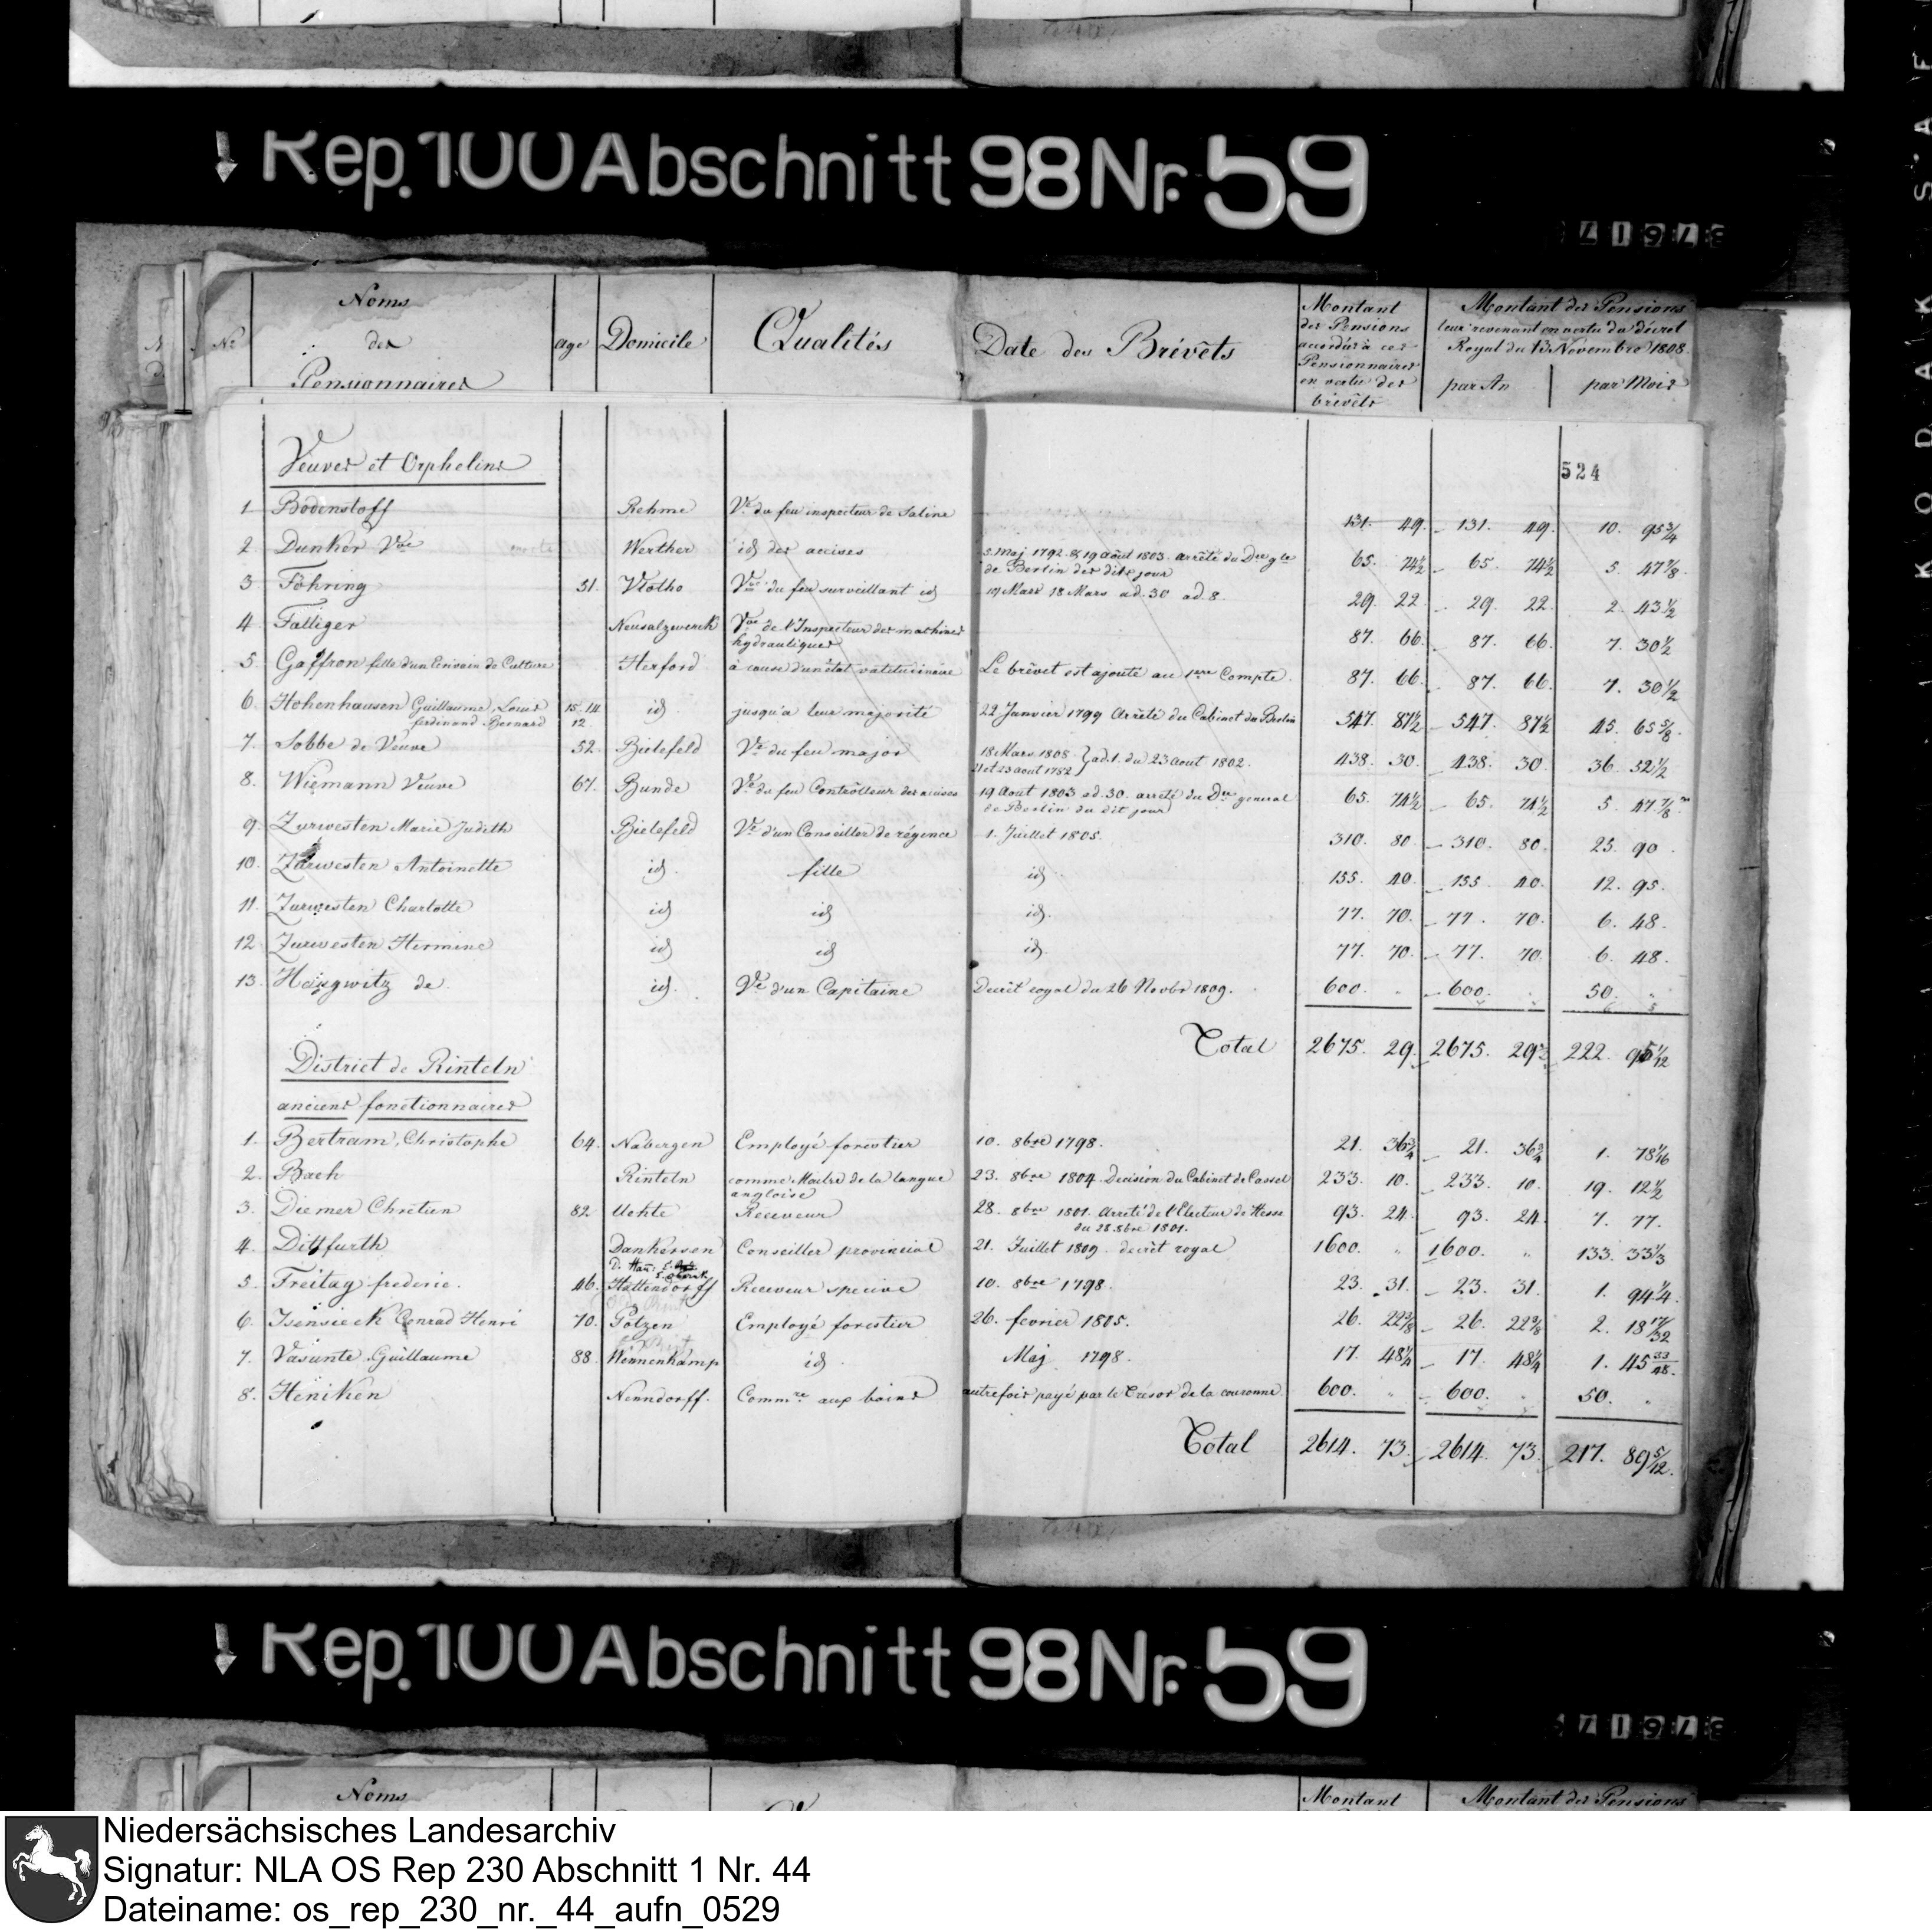 Rep. 100 Abschnitt 98 Nr. 59
No Noms des Pensionnaires age Domicile Qualités Date des Brévêts Montant des Pensions accordés à ces Pensionnaires en vertu des brévêts Montant des Pensions leur revenant en vertu du décret Royal du 13 Novembre 1808. par An par Mois
524
Veuves et Orphelins
1 Bodenstoff Rehme Ve du feu inspecteur de Saline 131. 49. 131. 49. 10. 95 3/4
2 Dunker Vve Werther id des accises 5. Maj 1792. & 19 août 1803. arrêté du Dre gle de Berlin des dits jour 65. 74 1/2 65. 74 1/2 5. 47 7/8.
3 Föhring 51. Vlotho Vve du feu surveillant id 19 Mars 18 Mars ad. 30 ad. 8. 29. 22. 29. 22. 2. 43 1/2
4 Fälliger Neusalzwerck Vve de l'Inspecteur des machines hydrauliques 87. 66. 87. 66. 7. 30 1/2
5. Gaffron fille d'un Ecrivain de Culture Herford à cause d'un état valetudinaire Le brévet est ajouté au 1ere Compte. 87. 66. 87. 66. 7. 30 1/2
6. Hohenhausen Guillaume, Louis ferdinand Bernard 15. 14. 12. id jusqu'a leur majorité 22 Janvier 1799 Arrêté du Cabinet du Berlin 547. 87 1/2 547. 87 1/2 45. 65 5/8.
7. Sobbe de Veuve 52. Bielefeld Ve du feu major 18 Mars 1808. 21 et 23 aout 1782 } ad. 1. du 23 aout 1802. 438. 30. 438. 30. 36. 52 1/2
8. Wiemann Veuve 67. Bunde Ve du feu Contrôlleur des accises 19 Aout 1803 ad. 30. arrêté du Dre general de Berlin du dit jour 65. 74 1/2 65. 74 1/2 5. 47 7/8
9. Zurwesten Marie Judith Bielefeld Ve d'un Conseiller de régence 1. Juillet 1805. 310. 80. 310. 80. 25. 90.
10. Zurwesten Antoinette id. fille id. 155. 40. 155. 40. 12. 95.
11. Zurwesten Charlotte id id id. 77. 70. 77. 70. 6. 48.
12. Zurwesten Hermine id id id. 77. 70. 77. 70. 6. 48.
13. Haugwitz de id. Ve d'un Capitaine Decrêt royal du 26 Novbr 1809. 600. " 600. " 50. "
Total 2675. 29. 2675. 29 222. 95 1/12
District de Rinteln
anciens fonctionnaires
1. Bertram, Christophe 64. Nabergen Employé forestier 10. 8bre 1798. 21. 36 3/4 21. 36 3/4 1. 78 1/16
2. Bach Rinteln comme Maitre de la langue angloise 23. 8bre 1804. Decision du Cabinet de Cassel 233. 10. 233. 10. 19. 12 1/2
3. Diemer Chretien 82 Uchte Receveur 28. 8bre 1801. Arreté de l'Electeur de Hesse du 28. 8bre 1801. 93. 24. 93. 24. 7. 77.
4. Dittfurth Dankersen Conseiller provincial 21. Juillet 1809. decrêt royal 1600. " 1600. " 133. 33 1/3
5. Freitag frederic. 46. Hattendorff Receveur 10. 8bre 1798. 23. 31. 23. 31. 1. 94 1/4.
6. Isensieck Conrad Henri 70. Götzen Employé forestier 26. fevrier 1805. 26. 22 9/8 26. 22 9/8 2. 18 17/32
7. Vasante Guillaume 88. Wennenkamp id. Maj 1798. 17. 48 1/4 17. 48 1/4 1. 45 33/48.
8. Heniken Nenndorff. Commre aux bains autrefois payé par le Trésor de la couronne. 600. " 600. " 50. "
Total 2614. 73. 2614. 73. 217. 89 5/12.
Rep. 100 Abschnitt 98 Nr. 59
Noms Montant Montant des Pensions
KODAK SAFE
Niedersächsisches Landesarchiv
Signatur: NLA OS Rep 230 Abschnitt 1 Nr. 44
Dateiname: os_rep_230_nr._44_aufn_0529